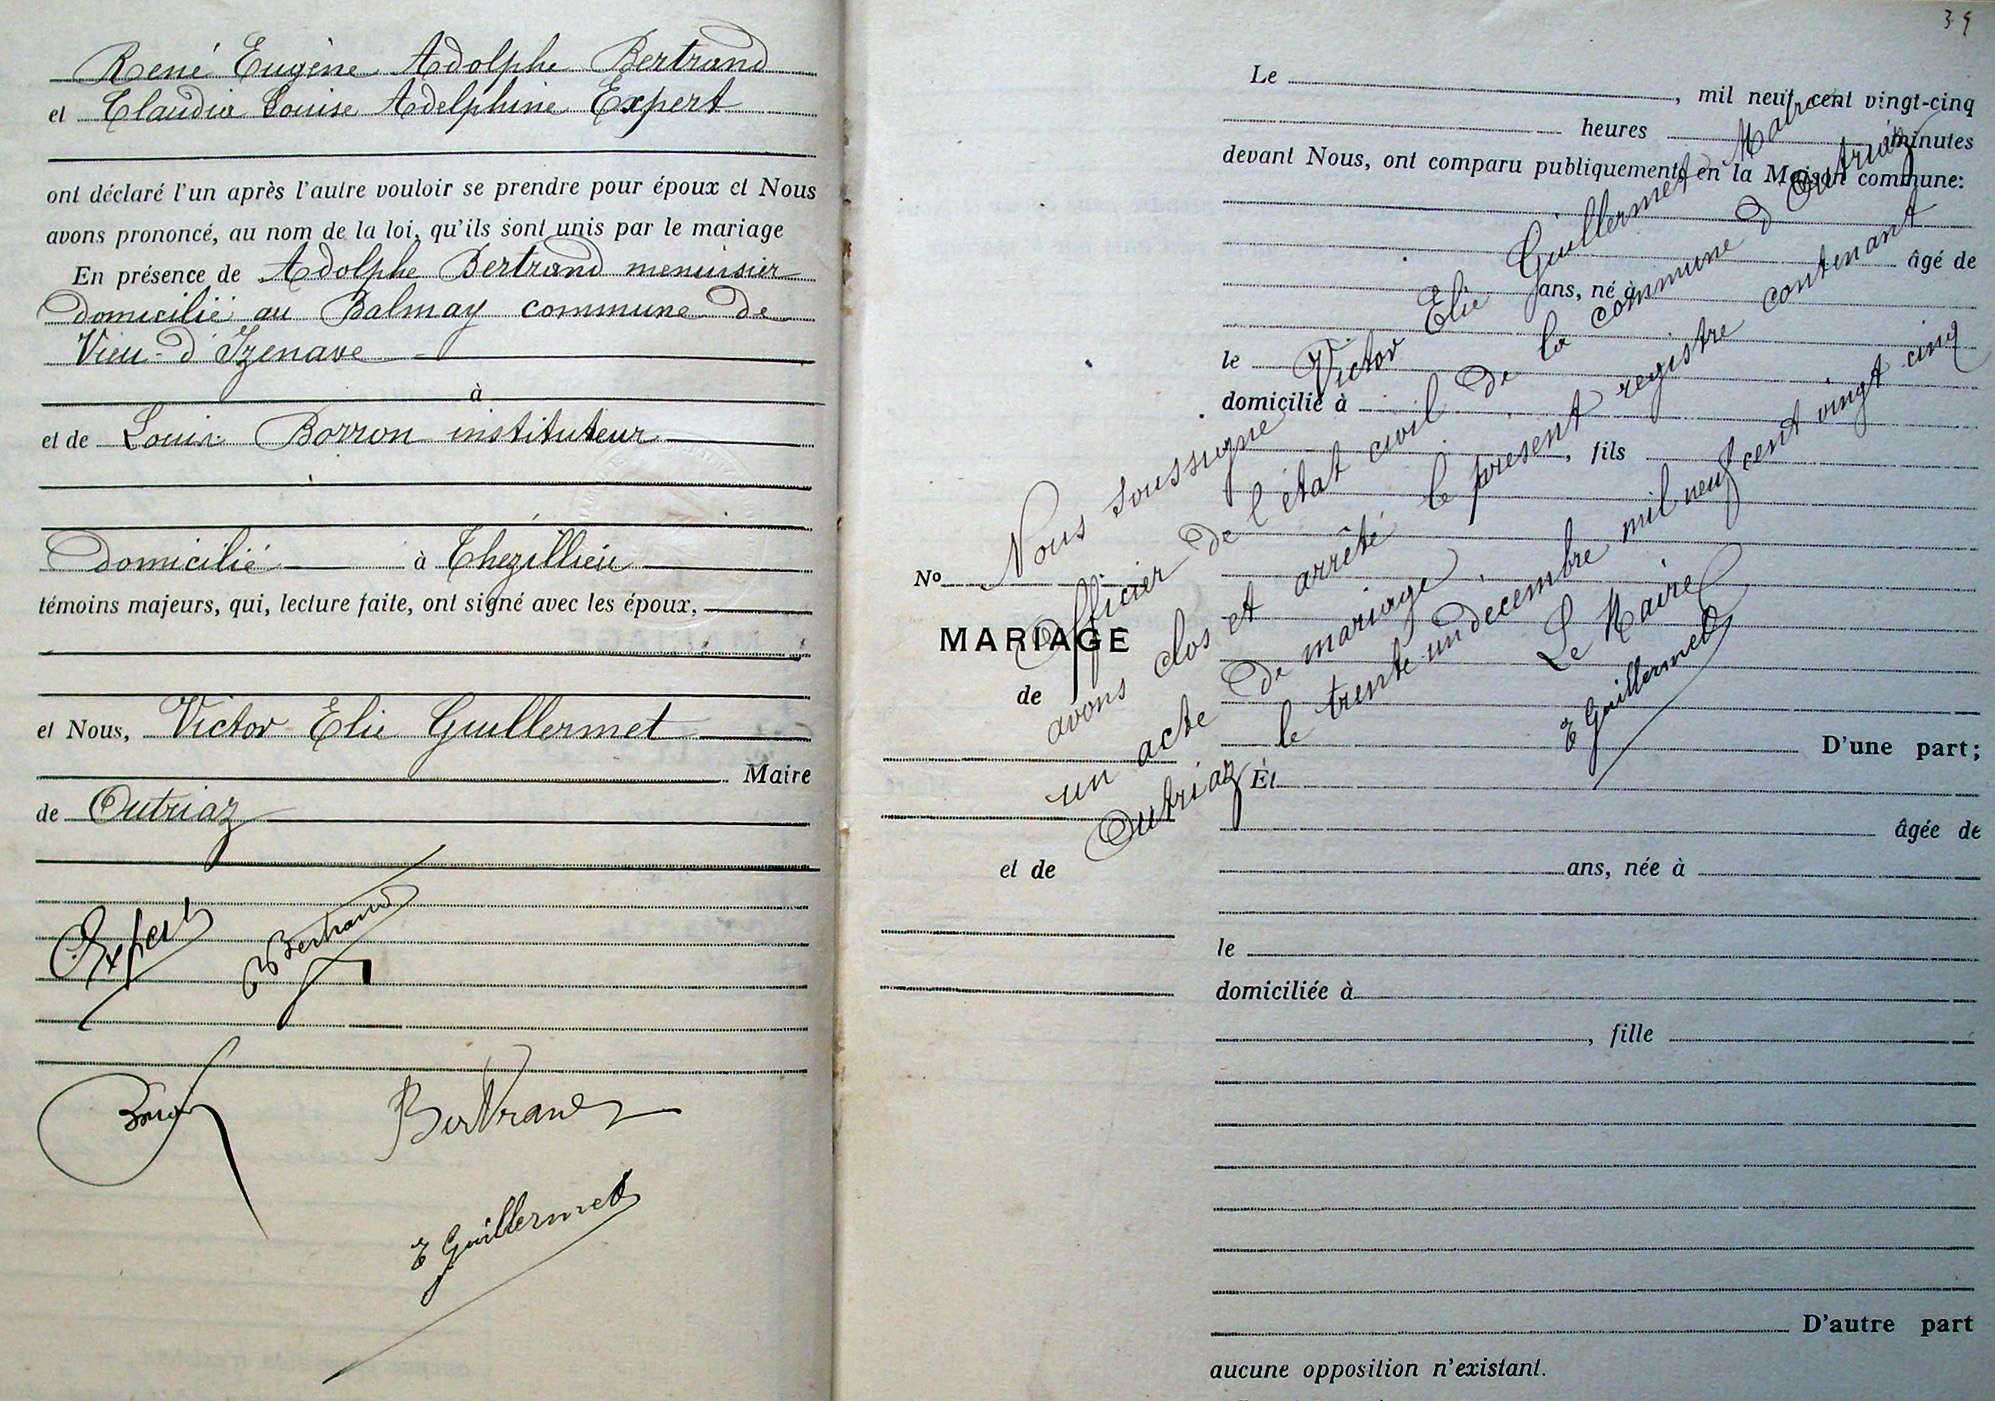 René Eugène Adolphe Bertrand
et Claudia Louise Adelphine Expert
ont déclaré l'un après l'autre vouloir se prendre pour époux et Nous
avons prononcé, au nom de la loi, qu'ils sont unis par le mariage
En présence de Adolphe Bertrand menuisier
domicilié au Balmay commune de
Vieu-d'Izenave
à
et de Louis Borron instituteur
domicilié à Thézillieu
témoins majeurs, qui, lecture faite, ont signé avec les époux,
et Nous, Victor Elie Guillermet
Maire
de Outriaz
Expert
Bertrand
Bertrand
E Guillermet
39
Le , mil neuf cent vingt-cinq
heures minutes
devant Nous, ont comparu publiquement en la Maison commune:
âgé de
ans, né à
le
domicilié à
, fils
No
MARIAGE
de
et de
Nous soussigné Victor Elie Guillermet Maire
Officier de l'état civil de la commune d'Outriaz
avons clos et arrêté le présent registre contenant
un acte de mariage
Outriaz le trente un décembre mil neuf cent vingt cinq
Le Maire
E Guillermet
D'une part;
Et
âgée de
ans, née à
le
domiciliée à
, fille
D'autre part
aucune opposition n'existant.